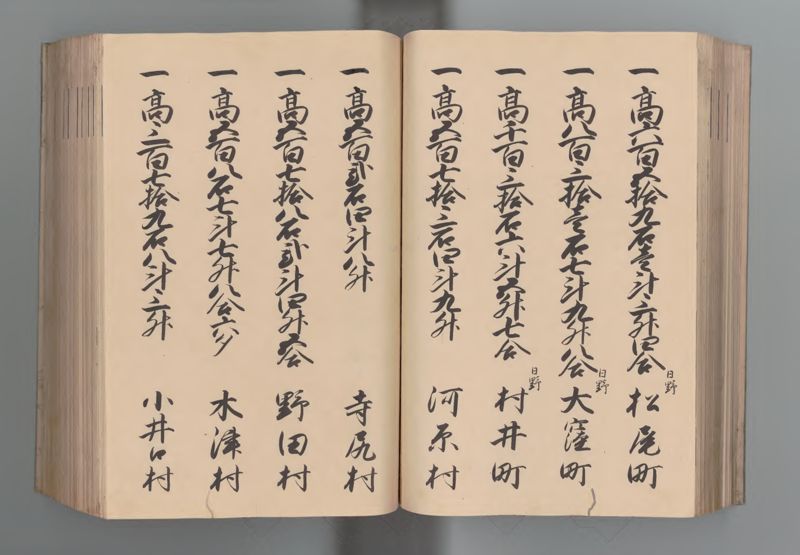 一高六百五拾九石壱斗三升四合 日野 松尾町
一高八百三拾壱石七斗九升八合 日野 大窪町
一高千百三拾石六斗五升七合 日野 村井町
一高五百七拾三石四斗九升 河原村
一高五百弐石四斗八升 寺尻村
一高五百七拾八石弐斗四升五合 野田村
一高五百八石七斗七升八合六勺 木津村
一高三百七拾九石八斗三升 小井口村